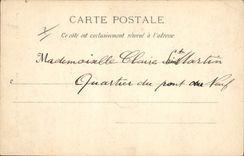 CARTE POSTALE
Ce côté est exclusivement réservé à l'adresse
Mademoiselle Claire St Martin
Quartier du pont du Neuf